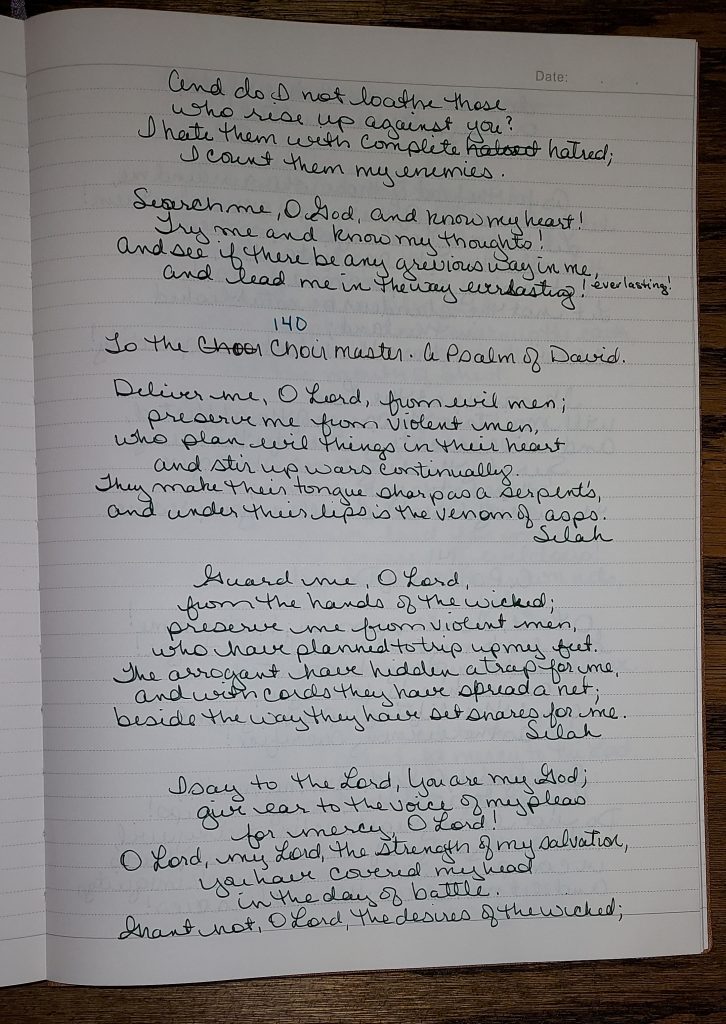 Date:
And do I not loathe those
who rise up against you?
I hate them with complete hatred hatred;
I count them my enemies.
Search me, O God, and know my heart!
Try me and know my thoughts!
And see if there be any grevious way in me,
and lead me in the way everlasting! everlasting!
140
To the Choor Choirmaster. A Psalm of David.
Deliver me, O Lord, from evil men;
preserve me from violent men,
who plan evil things in their heart
and stir up wars continually.
They make their tongue sharp as a serpent's,
and under their lips is the venom of asps.
Selah
Guard me, O Lord,
from the hands of the wicked;
preserve me from violent men,
who have planned to trip up my feet.
The arrogant have hidden a trap for me,
and with cords they have spread a net;
beside the way they have set snares for me.
Selah
I say to the Lord, You are my God;
give ear to the voice of my pleas
for mercy, O Lord!
O Lord, my Lord, the strength of my salvation,
you have covered my head
in the day of battle.
Grant not, O Lord, the desires of the wicked;